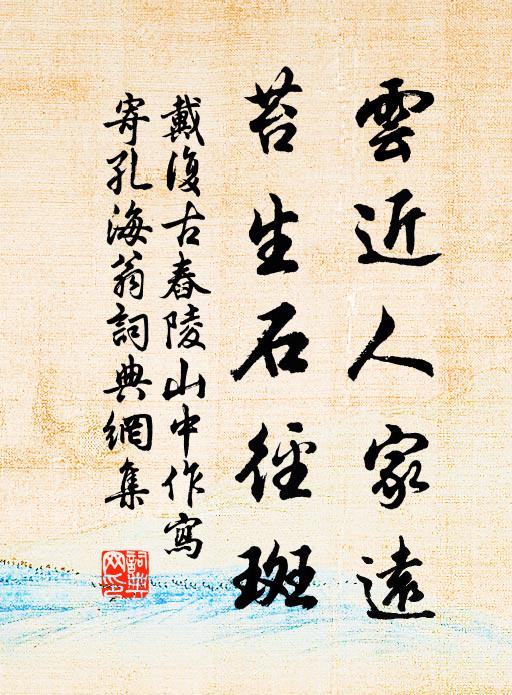 雲近人家遠
苔生石徑斑
戴復古舂陵山中作寫
寄孔海翁詞典網集